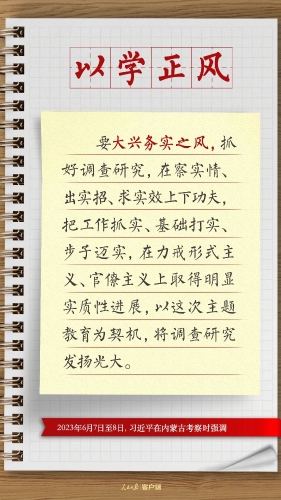 以学正风
要大兴务实之风，抓
好调查研究，在察实情、
出实招、求实效上下功夫，
把工作抓实、基础打实、
步子迈实，在力戒形式主
义、官僚主义上取得明显
实质性进展，以这次主题
教育为契机，将调查研究
发扬光大。
2023年6月7日至8日，习近平在内蒙古考察时强调
人民日报 客户端